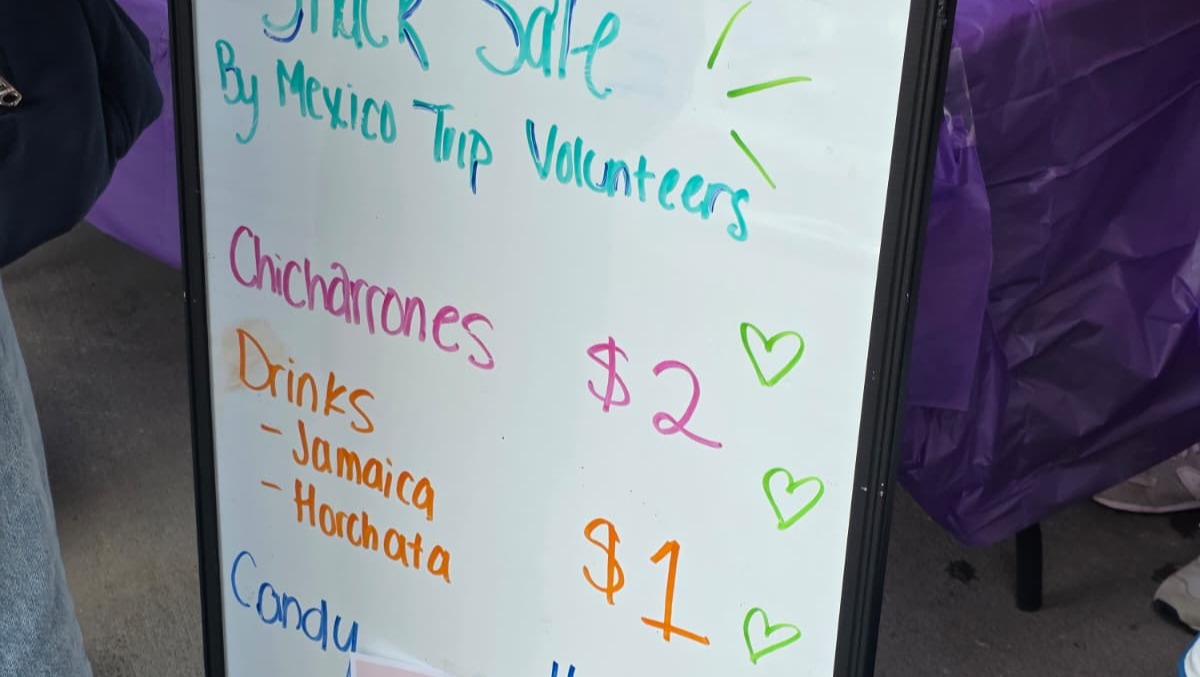 Snack Sale
By Mexico Trip Volunteers
Chicharrones $2
Drinks
- Jamaica
- Horchata $1
Candy